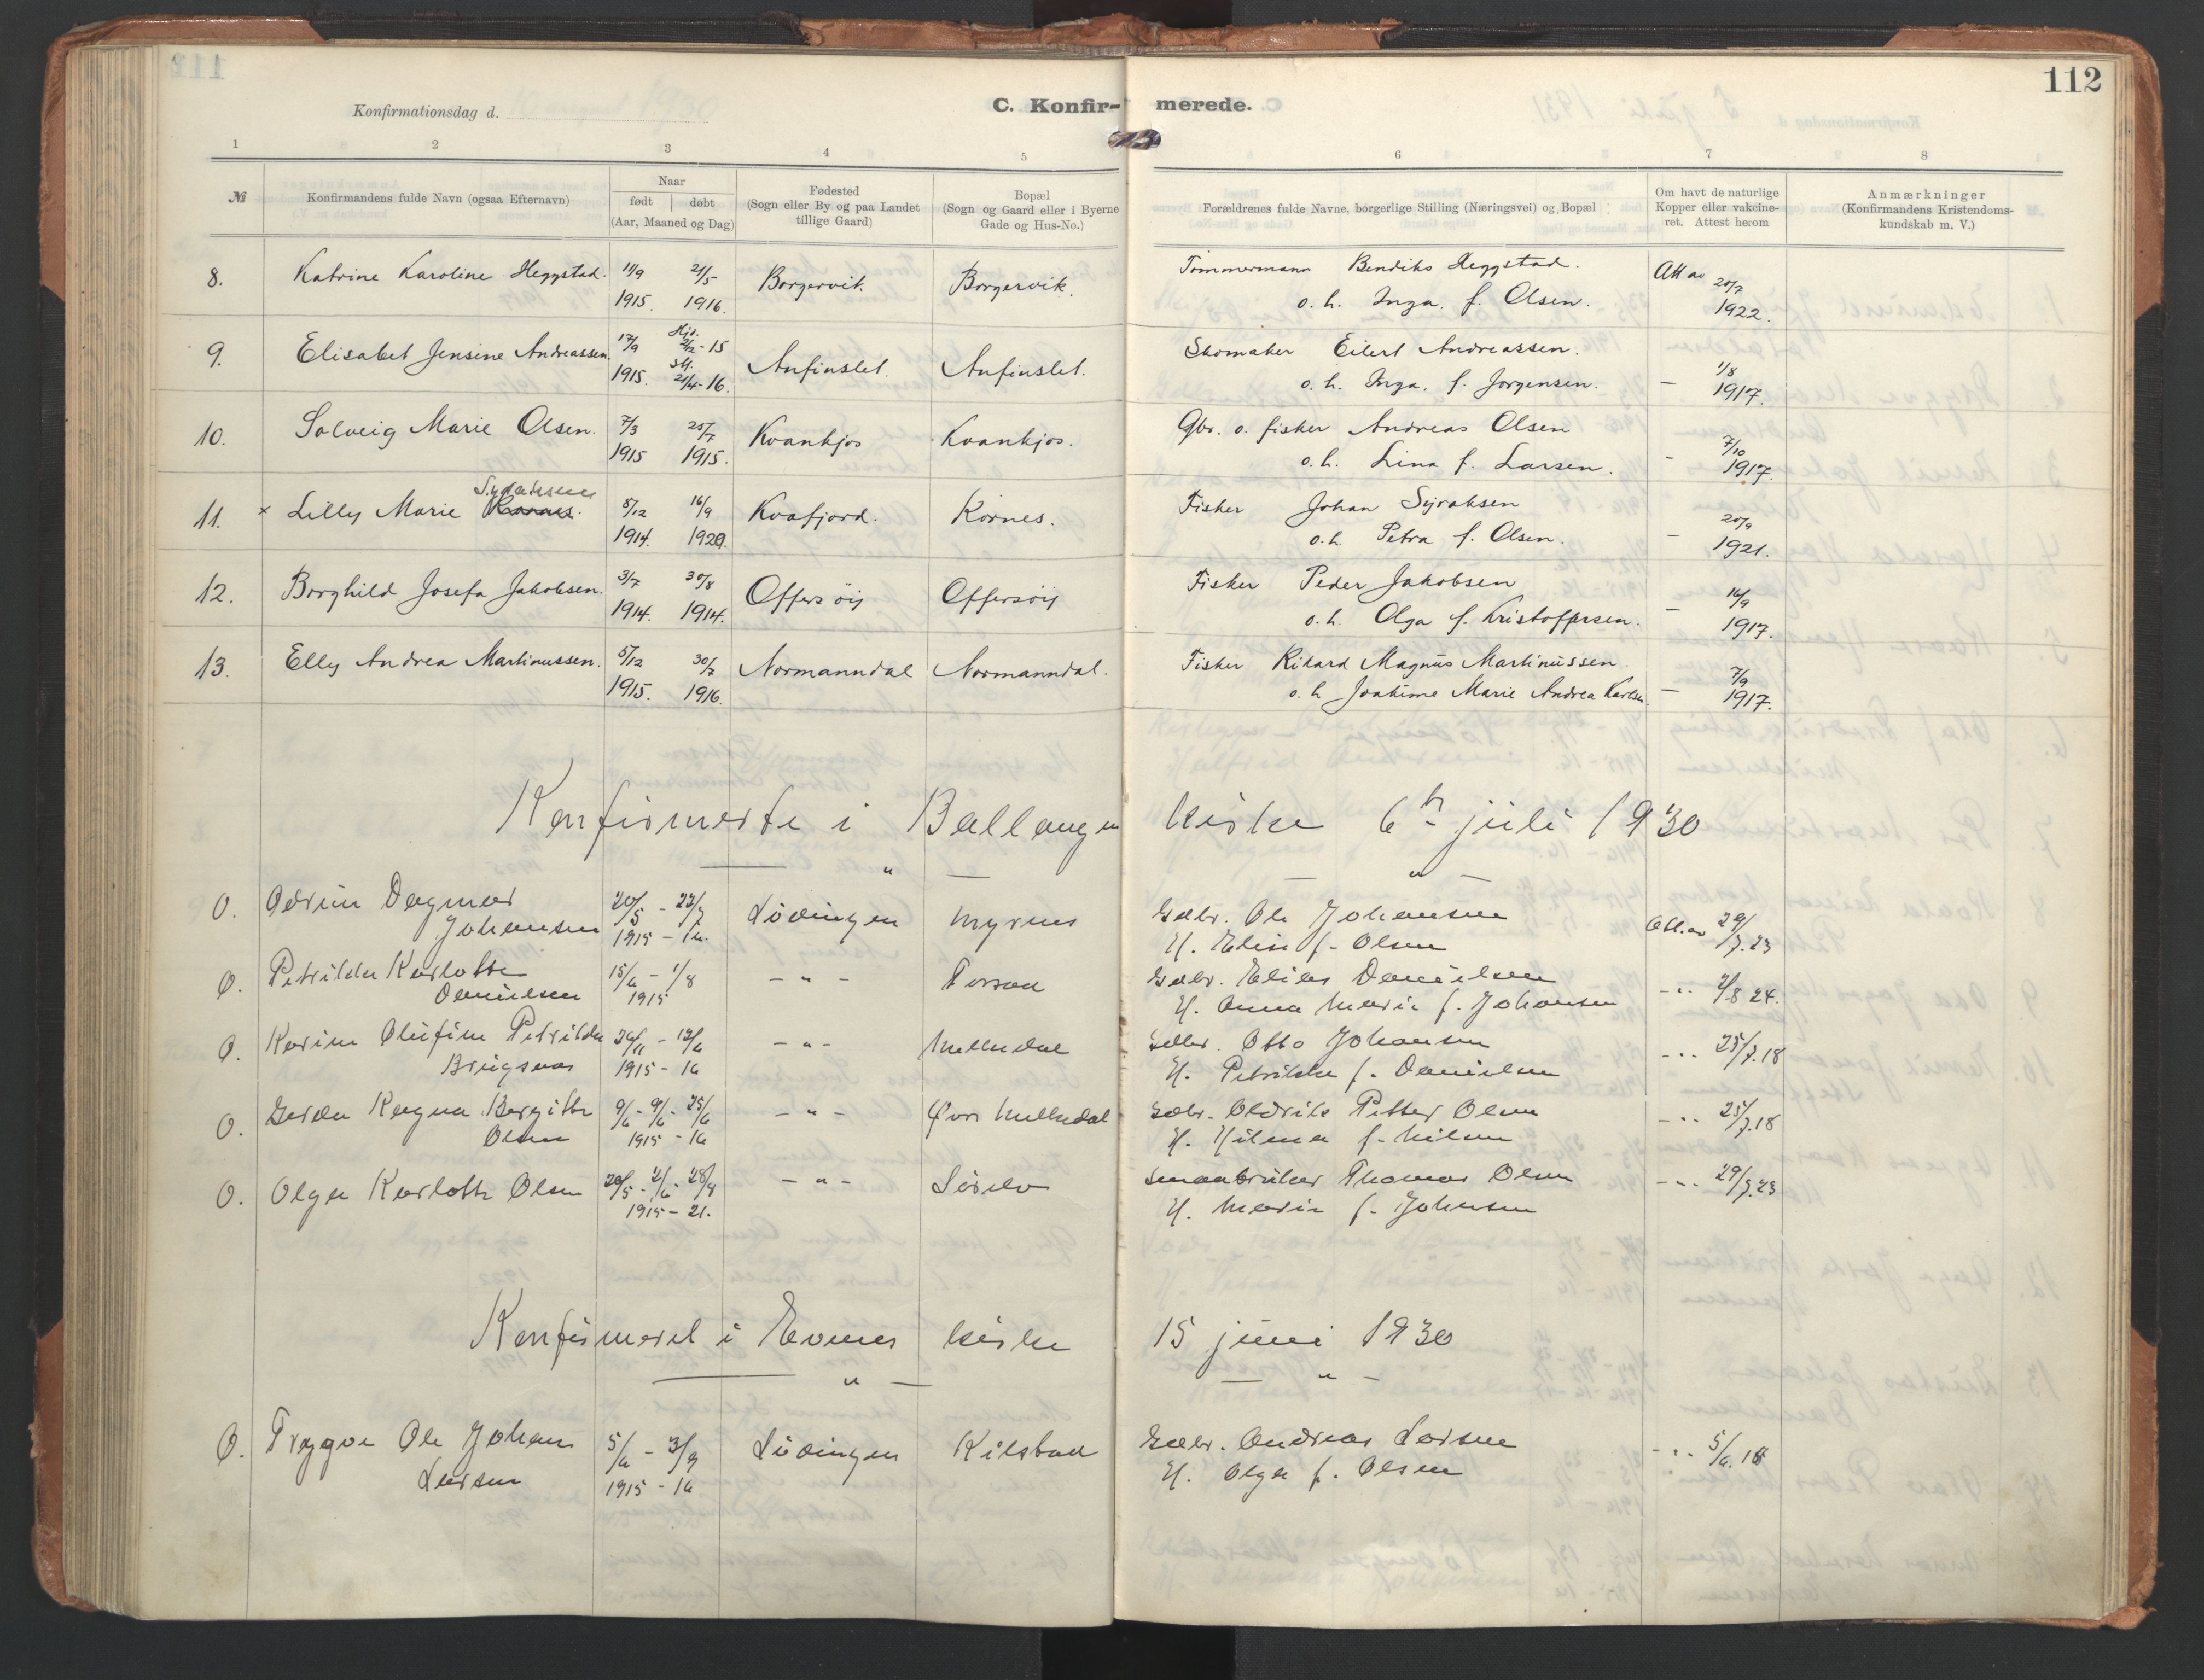 112
Konfirmationsdag d.
C. Konfir- merede.
1 2 3 4 5 6 7 8
№
Konfirmandens fulde Navn (ogsaa Efternavn)
Naar
født døbt
(Aar, Maaned og Dag)
Fødested
(Sogn eller By og paa Landet
tillige Gaard)
Bopæl
(Sogn og Gaard eller i Byerne
Gade og Hus-No.)
Forældrenes fulde Navne, borgerlige Stilling (Næringsvei) og Bopæl
Om havt de naturlige
Kopper eller vakcine-
ret. Attest herom
Anmærkninger
(Konfirmandens Kristendoms-
kundskab m. V.)
8. Katrine Karoline Heggstad. 11/9 21/5 Borgervik Borgervik. Tømmermann Bendiks Heggstad. Att av 20/7
1915. 1916. o. h. Inga. f. Olsen. 1922.
9. Elisabet Jensine Andreassen. 17/9 Hjd. 2/12-15 Anfinslet. Anfinslet. Skomaker Eilert Andreassen. 1/8
1915. st. 21/4-16. o. h. Inga. f. Jørgensen. — 1917.
10. Solveig Marie Olsen. 7/3 25/7 Kvankjos Kvankjos. Gbr. o. fisker Andreas Olsen 7/10
1915 1915. o. h. Lina f. Larsen. - 1917.
Syraksen
11. × Lilly Marie Kornes. 8/12 16/9 Kvafjord. Kornes. Fisker Johan Syraksen 20/9
1914. 1920. o. h. Petra f. Olsen. - 1921.
12. Borghild Josefa Jakobsen. 3/7 30/8 Offersøy Offersøy Fisker Peder Jakobsen 16/9
1914. 1914. o. h. Olga f. Kristoffersen. — 1917.
13. Elly Andrea Martinussen. 5/12 30/7 Normanndal Normanndal. Fisker Rikard Magnus Martinussen. 7/9
1915. 1916. o. h Joakime Marie Andrea Karlsen. — 1917.
Konfirmerte i Ballangen kirke 6te juli 1930
O. Odrun Dagmar 20/5 - 23/7 Lødingen Myrnes Gdbr. Ole Johansen Att.av 29/
Johansen 1915 - 16. H. Elise f. Olsen 7.23
O. Petrilde Karlotte 15/6 - 1/8 - " - Forsaa Gdbr. Elias Danielsen
Danielsen 1915 H. Anna Marie f. Johansen -". 2/8 24.
O. Karine Olufine Petrilde 26/11 - 12/6 - " - Melkedal Gdbr. Otto Johansen
Brugsnes 1915 - 16 H. Petrikke f. Danielsen -". 25/7.18
O. Gerda Ragna Bergitte 9/6 - 9/6 - 25/6 - " - Øvre Melkedal Gdbr. Aldrik Petter Olsen
Olsen 1915 - 16 H. Hilma f. Nilsen -". 25/7.18
O. Olga Karlotte Olsen 20/5 - 2/6 - 28/8 - " - Sørelv Smaabruker Thomas Olsen
1915 - 21. H. Marie f. Johnsen -". 29/7.23
Konfirmert i Evenes kirke 15 juni 1930
O. Trygve Ole Johan 5/6 - 3/9 Lødingen Kilstad Gdbr. Andreas Larsen
Larsen 1915 - 16 H. Olga f. Olsen -". 5/6.18